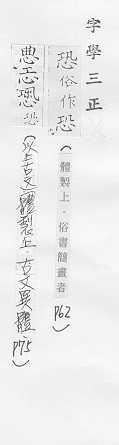 字學三正
恐俗作恐(體製上.俗書簡畫者P62)
恐(以上古文體製上 古文異體.P75)